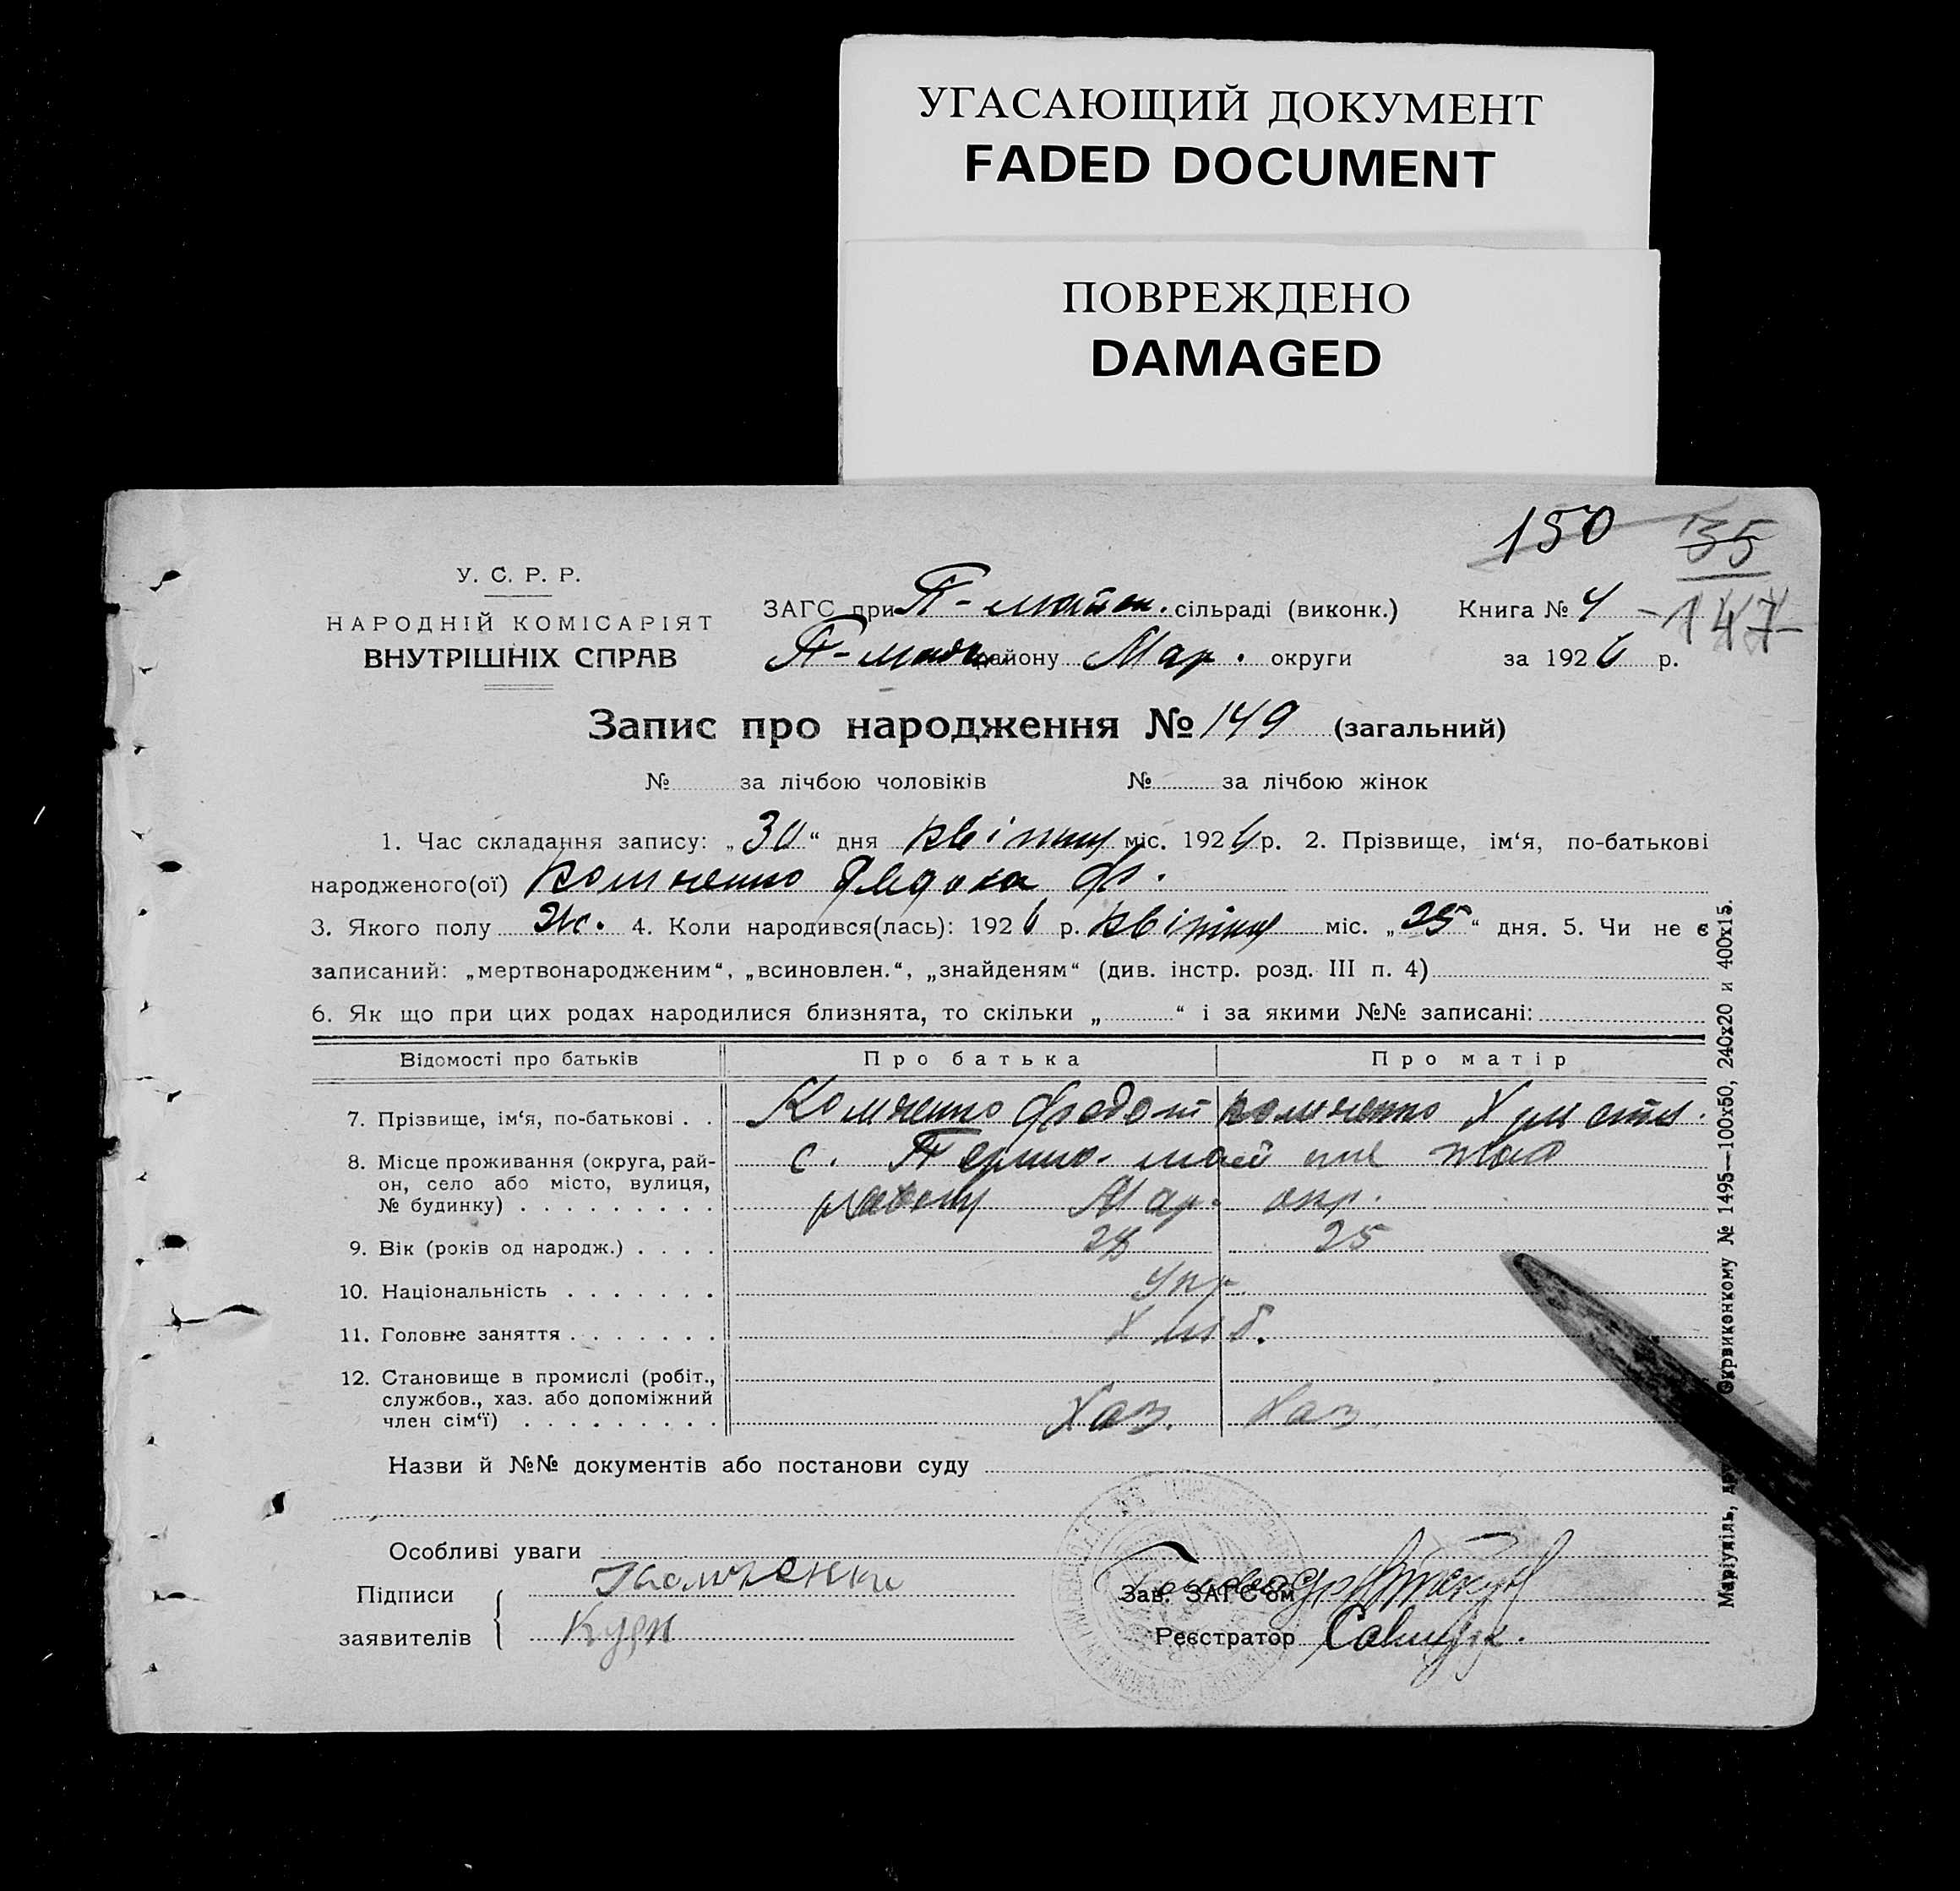 УГАСАЮЩИЙ ДОКУМЕНТ
FADED DOCUMENT
ПОВРЕЖДЕНО
DAMAGED
150 35
147
У. С. Р. Р.
НАРОДНІЙ КОМІСАРІЯТ
ВНУТРІШНІХ СПРАВ
ЗАГС при П- сільраді (виконк.) Книга № 4
П- району Мар. округи за 1926 р.
Запис про народження № 149 (загальний)
№ за лічбою чоловіків № за лічбою жінок
1. Час складання запису: „30“ дня квітня міс. 1926 р. 2. Прізвище, ім‘я, по-батькові
народженого(ої) Ф.
3. Якого полу ж. 4. Коли народився(лась): 1926 р. квітня міс. „25“ дня. 5. Чи не є
записаний: „мертвонародженим“, „всиновлен.“, „знайденям“ (див. інстр. розд. III п. 4)
6. Як що при цих родах народилися близнята, то скільки „ “ і за якими №№ записані:
Відомості про батьків Про батька Про матір
7. Прізвище, ім‘я, по-батькові . . Федот
8. Місце проживання (округа, рай-
он, село або місто, вулиця,
№ будинку) с. Мар. окр.
9. Вік (років од народж.) 28 25
10. Національність Укр.
11. Головне заняття Хліб.
12. Становище в промислі (робіт.,
службов., хаз. або допоміжний
член сім‘ї) Хаз. Хаз.
Назви й №№ документів або постанови суду
Особливі уваги
Підписи
заявителів
Зав. ЗАГС‘ом
Реєстратор
Маріупіль, Окрвиконкому № 1495—100х50, 240х20 и 400х15.